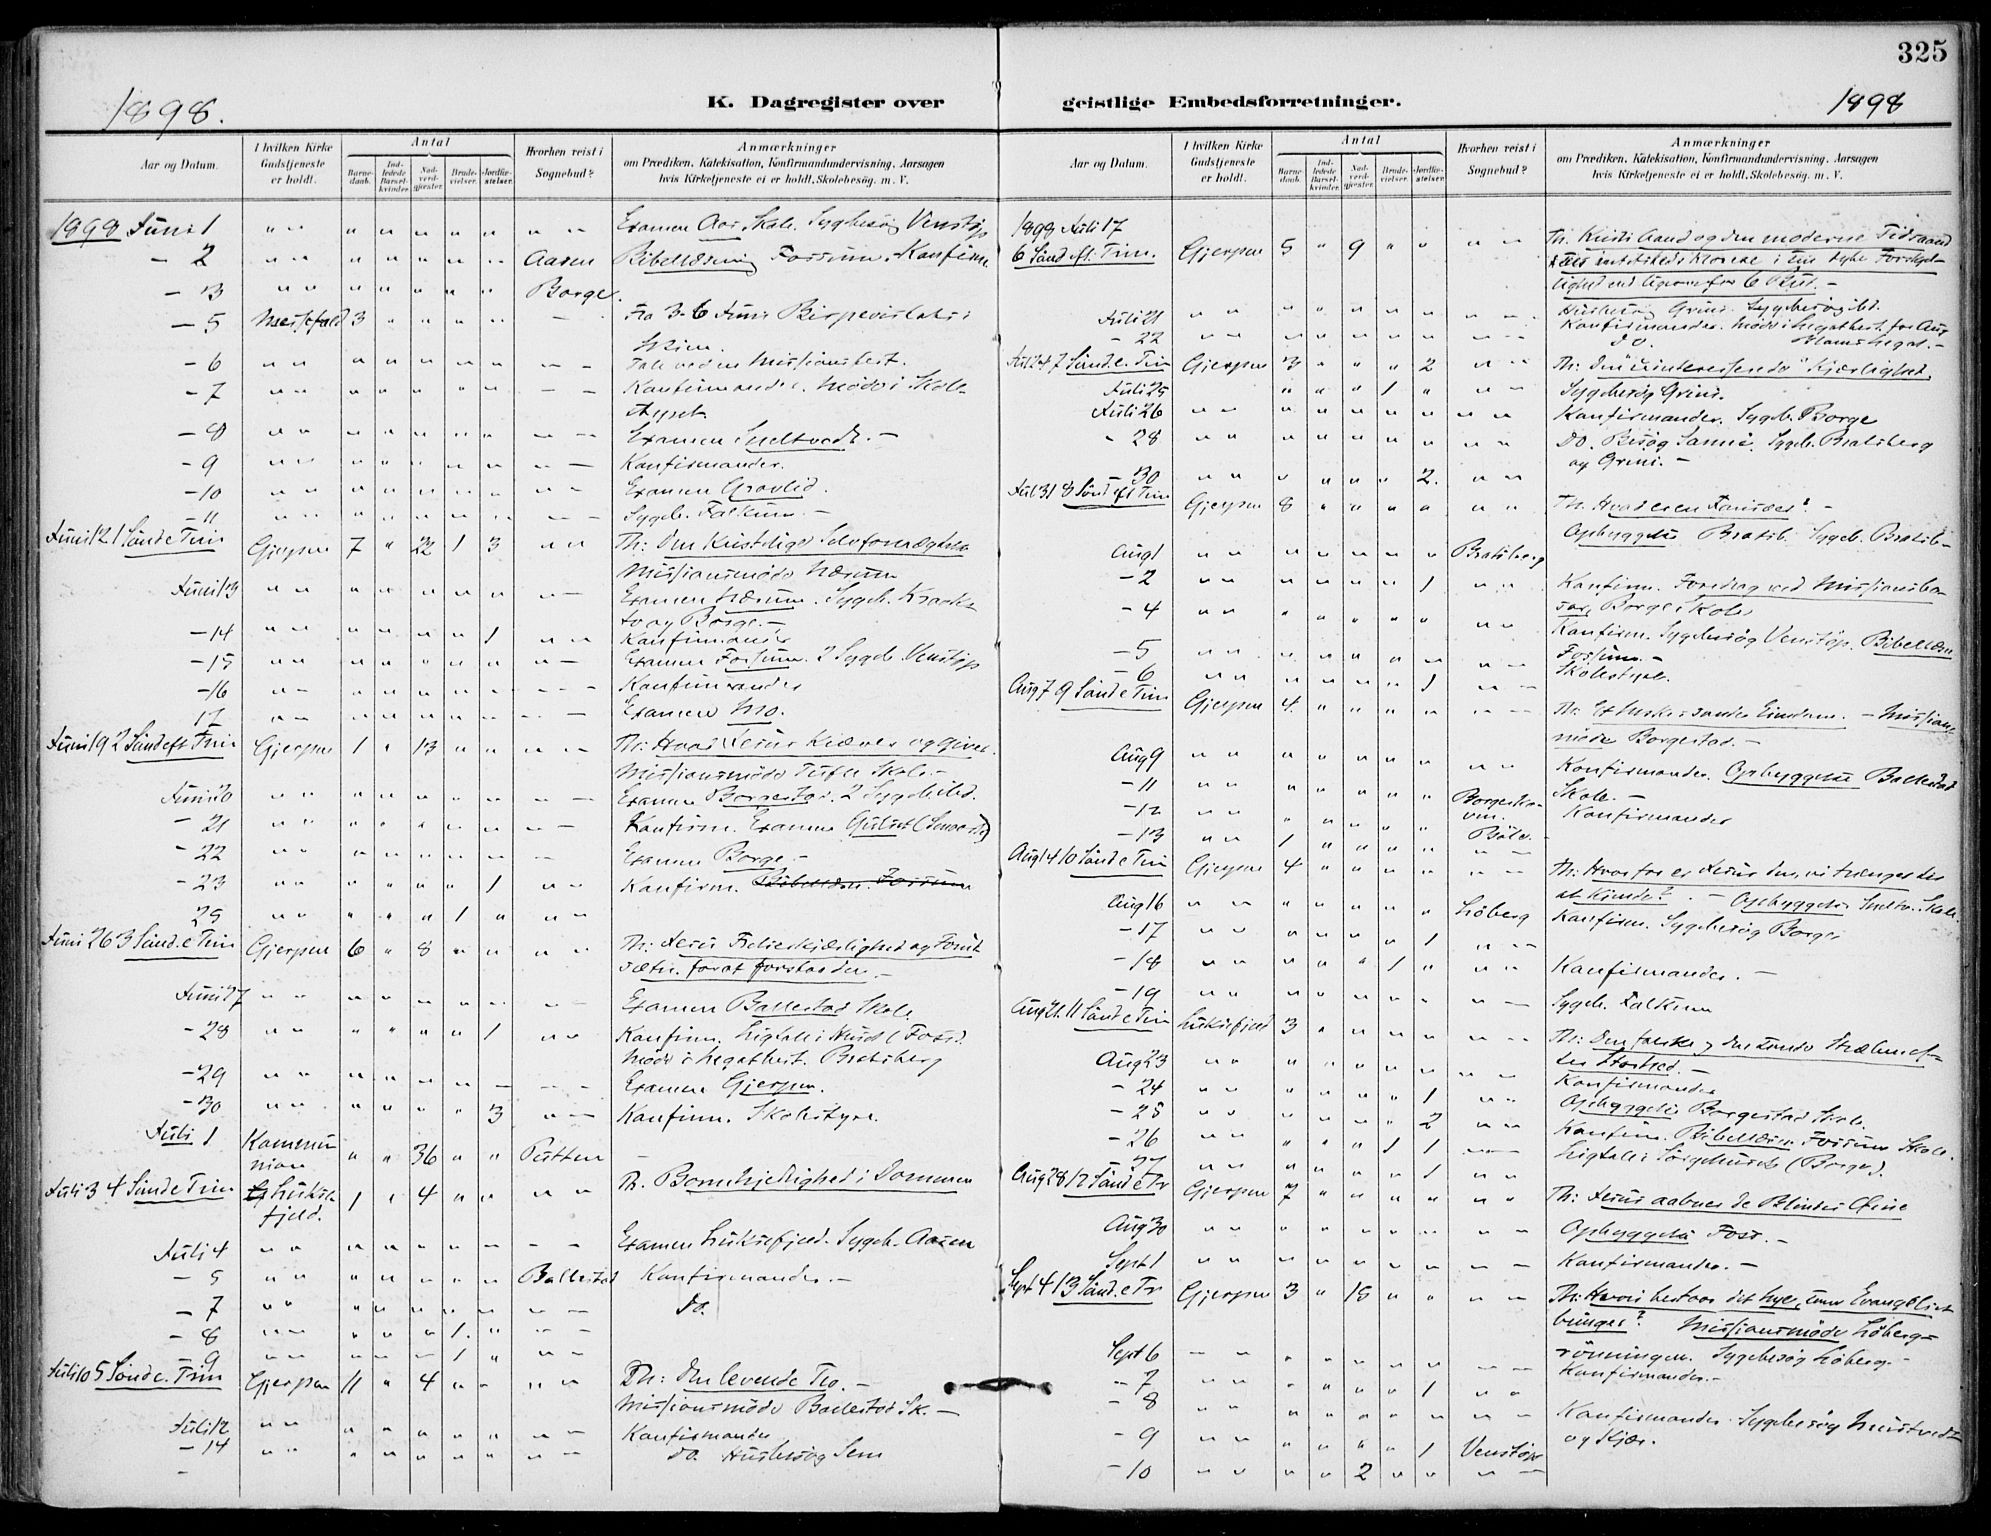 325
1898.
K. Dagregister over geistlige Embedsforretninger.
1898
Aar og Datum.
I hvilken Kirke Gudstjeneste er holdt.
Antal
Barnedaab.
Indledede Barselkvinder.
Nadverdgjester.
Brudevielser.
Jordfæstelser.
Hvorhen reist i Sognebud?
Anmærkninger
om Prædiken, Katekisation, Konfirmandundervisning, Aarsagen
hvis Kirketjeneste ei er holdt, Skolebesøg. m. V.
1898 Juni 1 " " " " " " " " " Examen Aas Skole. Sygebesøg Venstøp
- 2 " " " " " " " Aasen Bibellæsning Fossum. Konfirm
- 3 " " " " " " " Borge.
- 5 3 " " " " Fra 3-6 Juni Bispevisitats i
Skien.
- 6 " " " " " " " Tale ved en Missionsfest.
- 7 " " " " " " " Konfirmander. Møde i Skole
styret.
- 8 " " " " " " " Examen Sneltvedt. -
- 9 " " " " " " " Konfirmander.
- 10 " " " " " " " Examen Gravlid.
- 11 " " " " " " " Sygeb. Falkum. -
Juni 12 1 Sønd e Trin Gjerpen 7 " 22 1 3 " " Th: Den kristelige Selvfornægtelse
Missionsmøde
Juni 13 " " " " " " " Examen . Sygeb.
og Borge. -
- 14 " " " " " " 1 " " Konfirmander
- 15 " " " " " " " Examen Fossum. 2 Sygeb. Venstøp
- 16 " " " " " " " Konfirmander
17 " " " " " " " Examen Mo.
Juni 19 2 Sønd eft Trin Gjerpen 1 " 13 " " " " Th: Hvad Jesus Kræver og Giver.
Missionsmøde Tufte Skole. -
Juni 20 " " " " " " " Examen Borgestad. 2 Sygebesøg.
- 21 " " " " " " " Konfirm. Examen Gulset
- 22 " " " " " " " Examen Borge -
- 23 " " " " " " 1 " " Konfirm. Bibellæsn. Fossum
25 " " " " " 1 " " "
Juni 26 3 Sønd. e Trin Gjerpen 6 " 8 " " " " Th: Jesu Frelserkjærlighed og
for at forstaa den. -
Juni 27 " " " " " " " Examen Ballestad Skole
- 28 " " " " " " 1 " " Konfirm. Ligtale i Huset (Foss).
Møde i Legatbest. Bratsberg
- 29 " " " " " " " Examen Gjerpen.
- 30 " " " " " " 3 " " Konfirm. Skolestyre.
Juli 1 Kommunion " " 36 " "
Juli 3 4 Sønd e Trin Luksefjeld. 1 " 4 " " " " Th. Barmhjertighed i Dommen
Juli 4 " " " " " " " Examen Luksefjeld. Sygeb. Aasen
- 5 " " " " " " " Ballestad Konfirmander. -
- 7 " " " " " " " Do.
- 8 " " " " " 1. " " "
- 9 " " " " " 1 " " "
Juli 10 5 Sønd e. Trin Gjerpen 11 " 4 " " " " Th: Den levende Tro. -
Missionsmøde Ballestad Sk. -
Juli 12 " " " " " " " Konfirmander
- 14 " " " " " " " Do. Husbesøg Sem
Aar og Datum.
I hvilken Kirke Gudstjeneste er holdt.
Antal
Barnedaab.
Indledede Barselkvinder.
Nadverdgjester.
Brudevielser.
Jordfæstelser.
Hvorhen reist i Sognebud?
Anmærkninger
om Prædiken, Katekisation, Konfirmandundervisning, Aarsagen
hvis Kirketjeneste ei er holdt, Skolebesøg. m. V.
1898 Juli 17
6 Sønd eft. Trin. Gjerpen 5 " 9 " " " " Th. Kristi Aand og den moderne Tidsaand
for 6 Bud. -
Juli 21 " " " " " " " Husbesøg Grini. Sygebesøg ibd.
- 22 " " " " " " " Konfirmander. Møde i Legatbest. for Aug
Do. Legat. -
Juli 24 7 Sønd e. Trin Gjerpen 3 " " " 2 " " Th: Den uinteresserede Kjærlighed.
Juli 25 " " " 1 " " " Sygebesøg Grini.
Juli 26 " " " " " " " Konfirmander. Sygeb. Borge
- 28 " " " " " " " Do. Besøg Sanni. Sygeb. Bratsberg
og Grini. -
- 30 " " " " " " 2. " "
Juli 31 8 Sønd eft Trin Gjerpen 8 " " " " " " Th. Hvad er en Farisæer? -
Opbyggelse Bratsb. Sygeb. Bratsb-
Aug 1 " " " " " " " Bratsberg
- 2 " " " " " " 1 " " Konfirm. Foredrag ved Missionsbasar,
Borge Skole
- 4 " " " " " " " Konfirm. Sygebesøg Venstøp. Bibellæsn
Fossum. -
- 5 " " " " " " " Skolestyre.
- 6 " " " " " " 1 " "
Aug 7 9 Sønd e Trin Gjerpen 4. " " " " " " Th: Et Eiendom. - Missionsmøde
Borgestad. -
Aug 9 " " " " " " " Konfirmander. Opbyggelse Ballestad
Skole. -
- 11 " " " " " " " Konfirmander
- 12 " " " " " " " Bøle
- 13 " " 1 " " " " " "
Aug 14 10 Sønd e Trin Gjerpen 4 " " " " " " Th: Hvorfor er Jesus den, vi trænger til
at kjende? - Opbyggelse Sneltv. Skole.
Aug 16 " " " " " " " Løberg Konfirm. Sygebesøg Borge
- 17 " " " " " " 1 " "
- 18 " " " " " 1 " " " Konfirmander. -
- 19 " " " " " " " Sygeb. Falkum
Aug 21. 11 Sønd e Trin Luksefjeld 3 " " " " " " Th: Den falske og den sande Stræben
efter Storhed. -
Aug 23 " " " " " " " Konfirmander
- 24 " " " " " " 1 " " Opbyggelse Borgestad Skole.
- 25 " " " " " " 2 " " Konfirm. Bibellæsn. Fossum Skole.
- 26 " " " " " 1 1 " " Ligtale i Sørgehuset (Borge).
- 27 " " " " " " 1 " "
Aug 28 12 Sønd e Tr Gjerpen 7 " " " " " " Th: Jesus aabner de Blindes Øine
Aug 30 " " " " " " " Opbyggelse Foss. -
Sept 1 " " " " " " " Konfirmander. -
Sept 4 13 Sønd. e Tr Gjerpen 3 " 15 " " " " Th: Hvori bestaar det nye, som Evangeliet
bringer? Missionsmøde Løberg-
rønningen. Sygebesøg Løberg. -
Sept 6 " " " " " " " Konfirmander. -
- 7 " " " " " " 1 " "
- 8 " " " " " " " Konfirmander. Sygebesøg
og Skjær.
- 9 " " " " " " 1 Venstøp
- 10 " " " " 2 " " " "